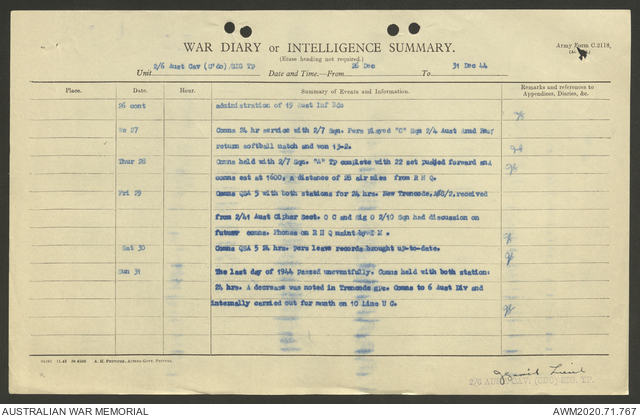 WAR DIARY or INTELLIGENCE SUMMARY.
Army Form C.2118.
(Erase heading not required.)
Unit 2/6 Aust Cav (C'do) /SIG TP Date and Time—From 26 Dec To 31 Dec 44
Place. Date. Hour. Summary of Events and Information. Remarks and references to Appendices, Diaries, &c.
26 cont administration of 19 Aust Inf Bde
We 27 Comms 24 hr service with 2/7 Sqn. Pers played "C" Sqn 2/4 Aust Armd Regt
return softball match and won 13-2.
Thur 28 Comms held with 2/7 Sqn. "A" Tp complete with 22 set pushed forward and
comms est at 1600, a distance of 28 air miles from R H Q.
Fri 29 Comms QSA 5 with both stations for 24 hrs. New Trencode, received
from 2/41 Aust Cipher Sect. O C and Sig O 2/10 Sqn had discussion on
future comms. Phones on R H Q maint by
Sat 30 Comms QSA 5 24 hrs. Pers leave records brought up-to-date.
Sun 31 The last day of 1944 passed uneventfully. Comms held with both station:
24 hrs. A decrease was noted in Trencode gps. Comms to 6 Aust Div and
internally carried out for month on 10 Line U C.
A. H. Pettifer, Acting-Govt. Printer.
Lieut
2/6 AUST CAV: (CDO) SIG. TP.
AUSTRALIAN WAR MEMORIAL
AWM2020.71.767